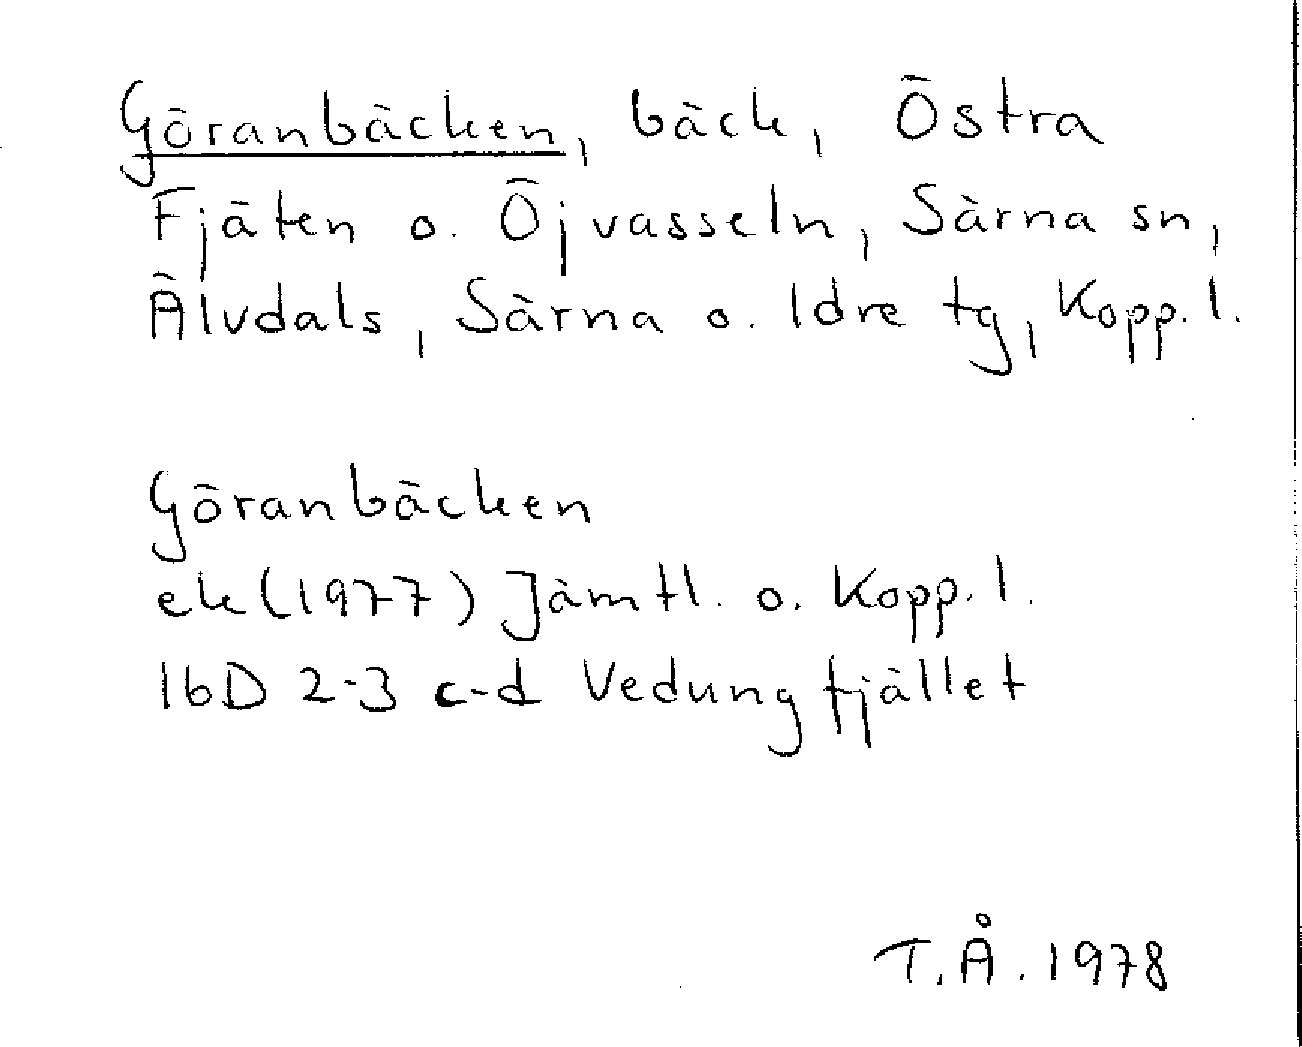 Göranbäcken, bäck, Östra
Fjäten o. Öjvasseln, Särna sn,
Älvdals, Särna o. Idre tg, Kopp. l.
Göranbäcken
ek (1977) Jämtl. o. Kopp. l.
16D 2-3 c-d Vedungfjället
T.Å. 1978